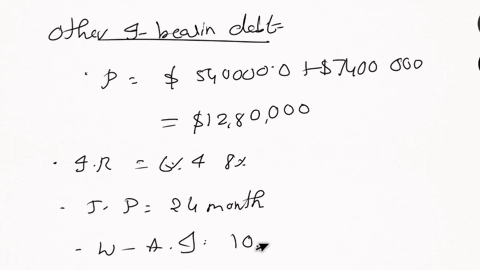 Other I-bearin debt-
· P = $ 540000·0 + $7400 000
= $12,80,000
· I.R = 6% 4 8%
- T- P = 24 month
- W - A. I: 10